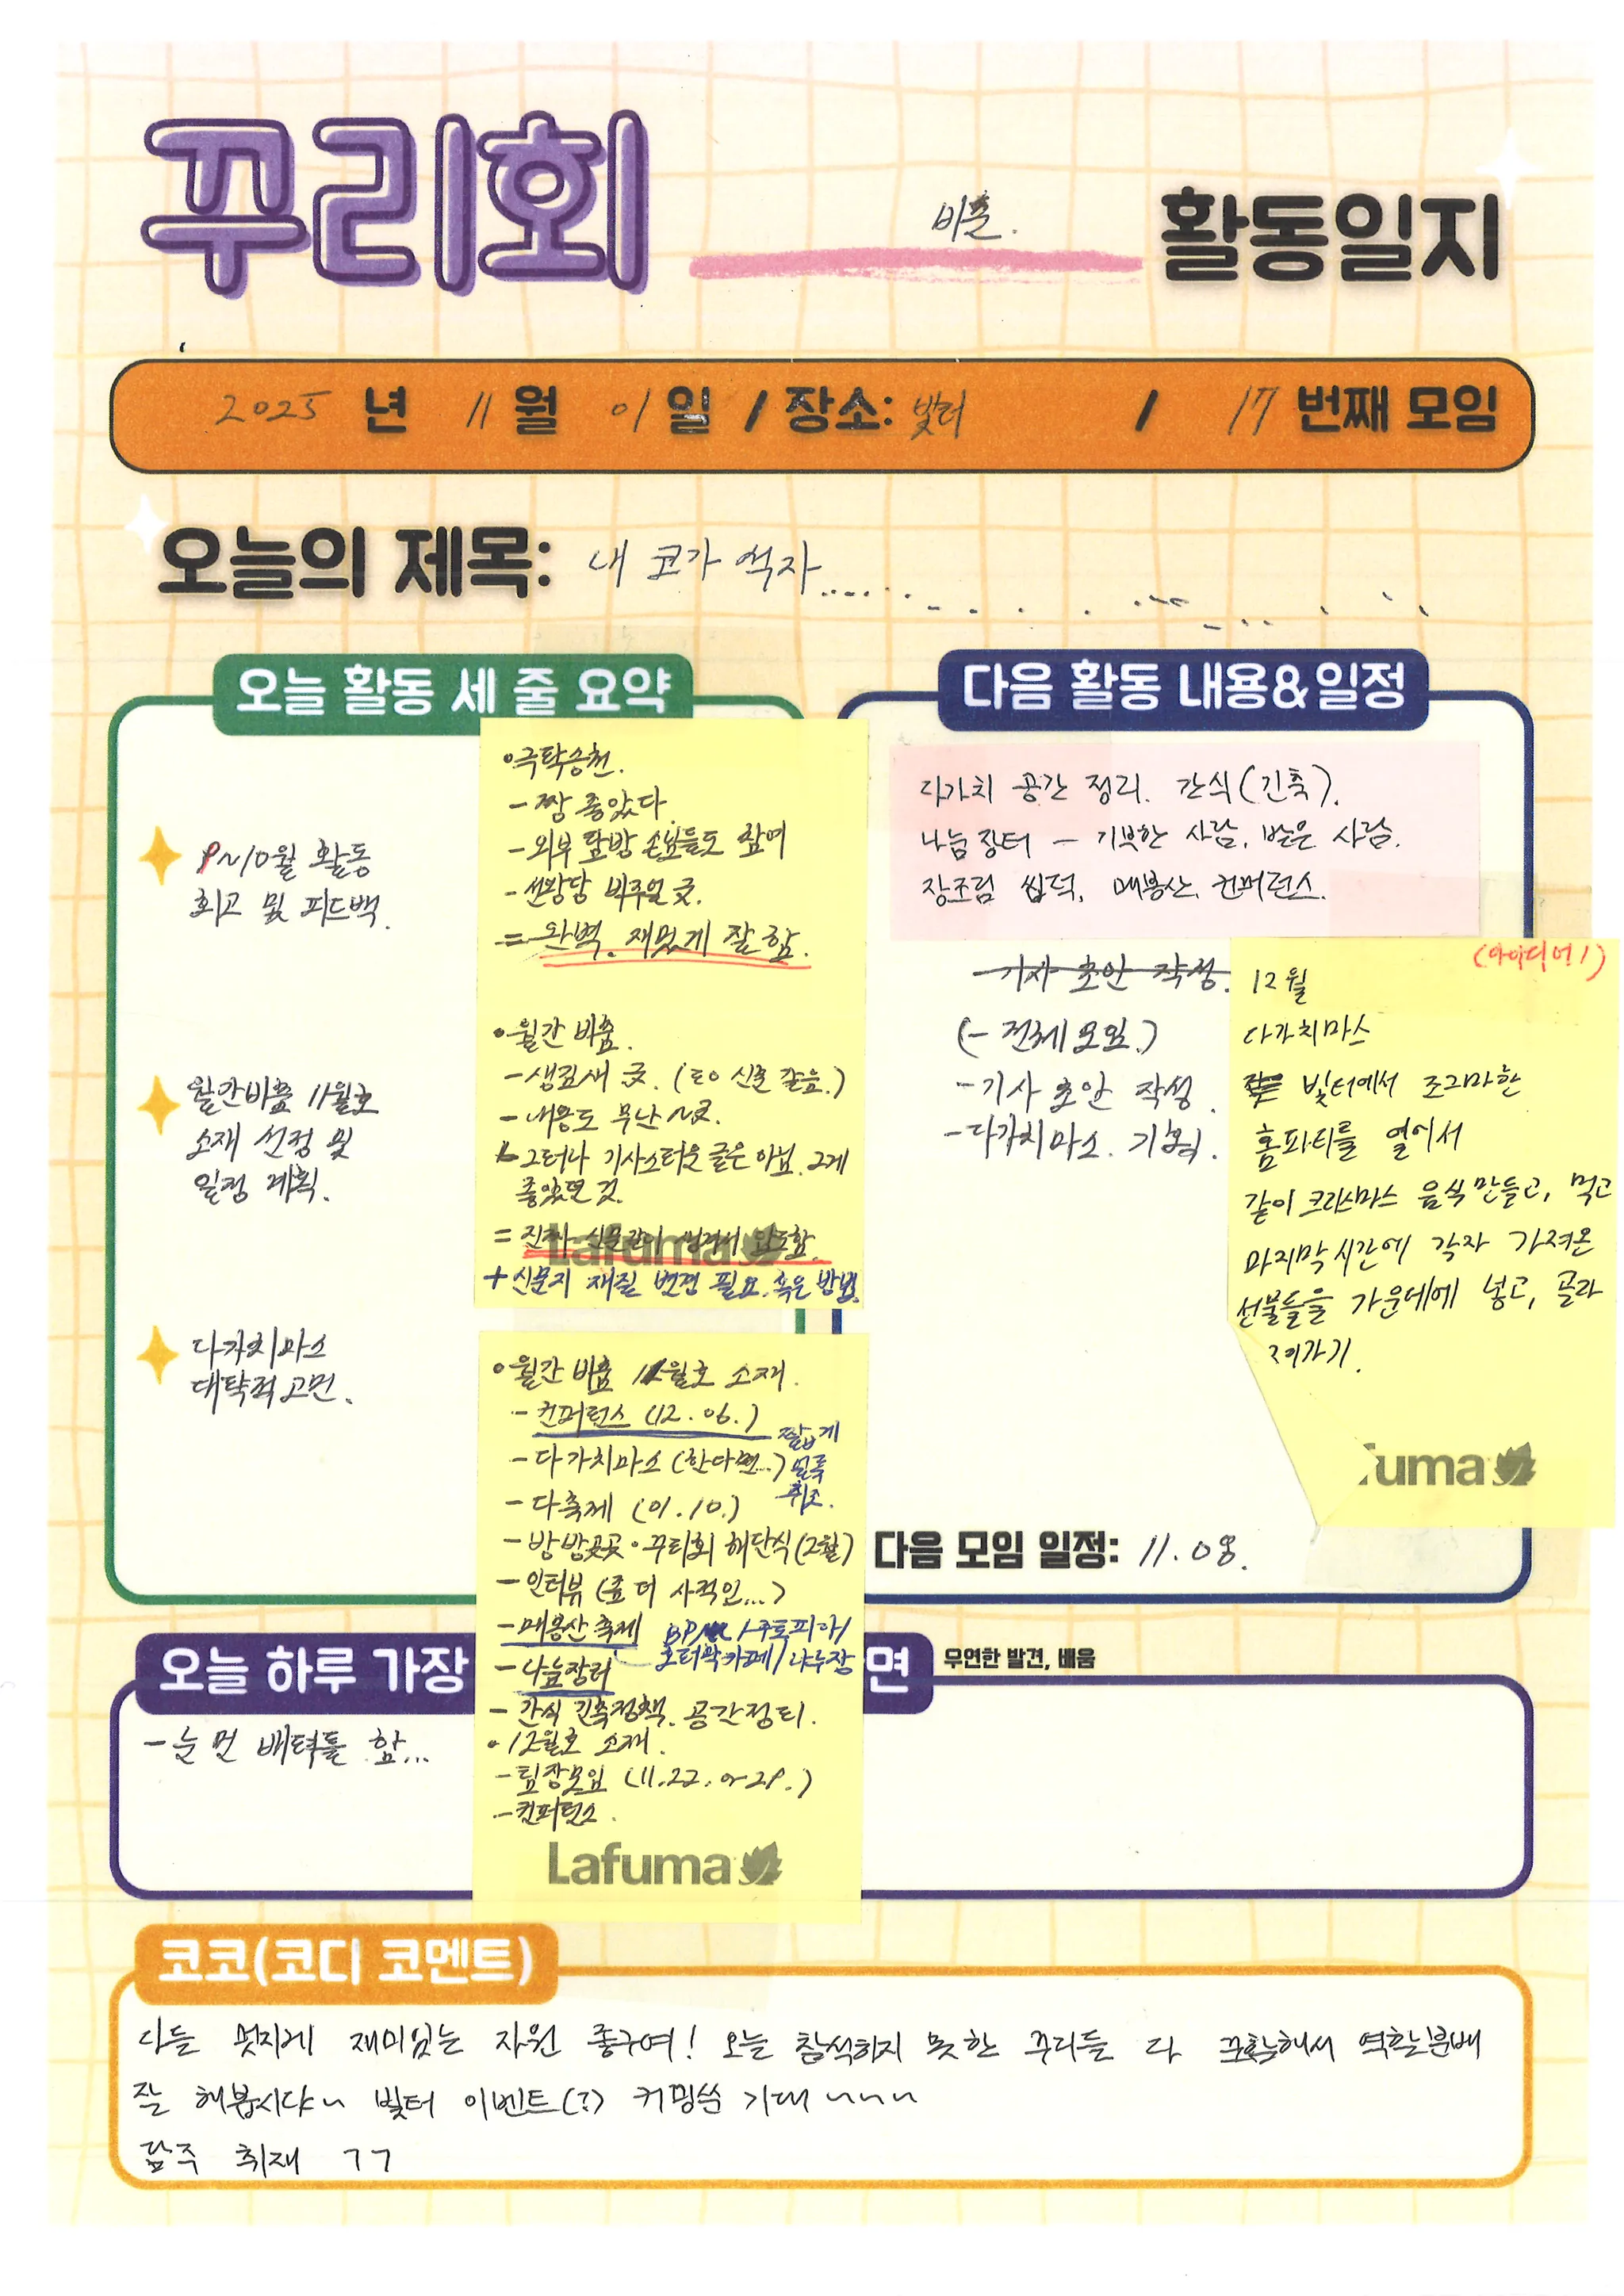 꾸리회 비춤. 활동일지
2025 년 11 월 01 일 / 장소: 빛터 / 17 번째 모임
오늘의 제목: 내 코가 석자
오늘 활동 세 줄 요약
9~10월 활동
회고 및 피드백.
월간비춤 11월호
소재 선정 및
일정 계획.
다가치마스
대략적 고민.
•극락승천.
-짱 좋았다.
-외부 탐방 손님들도 참여
-선방당 비주얼 굿.
= 완벽. 재밌게 잘 함.
•월간 비춤.
-생김새 굿. (로 신문 같음.)
-내용도 무난 굿.
그러나 기사스러운 글은 아님. 그게
좋았던 것.
= 진짜 신문같이 생겨서 만족함.
+신문지 재질 변경 필요. 혹은 방법.
Lafuma
•월간 비춤 11월호 소재.
-컨퍼런스 (12.06.)
-다가치마스 (한다면..)
짧게
취조.
-다축제 (01.10.)
-방방곳곳·꾸리회 해단식(2월)
-인터뷰 (좀 더 사적인...)
-매봉산 축제
-나눔장터
-간식 긴축정책. 공간정리.
•12월호 소재.
-팀장모임 (11.22. or 29.)
-컨퍼런스.
Lafuma
다음 활동 내용&일정
다가치 공간 정리. 간식(긴축).
나눔장터 - 기부한 사람, 받은 사람.
장조림 씹덕, 매봉산, 컨퍼런스.
-기사 초안 작성.
(-전체모임.)
-기사 초안 작성.
-다가치마스. 기획.
(아이디어!)
12월
다가치마스
빛터에서 조그마한
홈파티를 열어서
같이 크리스마스 음식 만들고, 먹고
마지막시간에 각자 가져온
선물들을 가운데에 넣고, 골라
가기.
fuma
다음 모임 일정: 11.08.
오늘 하루 가장
면 우연한 발견, 배움
-눈 먼 배력틀 함...
코코(코디 코멘트)
다들 멋지게 재미있는 자원 좋구여! 오늘 참석하지 못한 꾸리들 다 규합해서 역할분배
잘 해봅시다~ 빛터 이벤트(?) 커밍쑨 기대~~~
담주 취재 ㄱㄱ